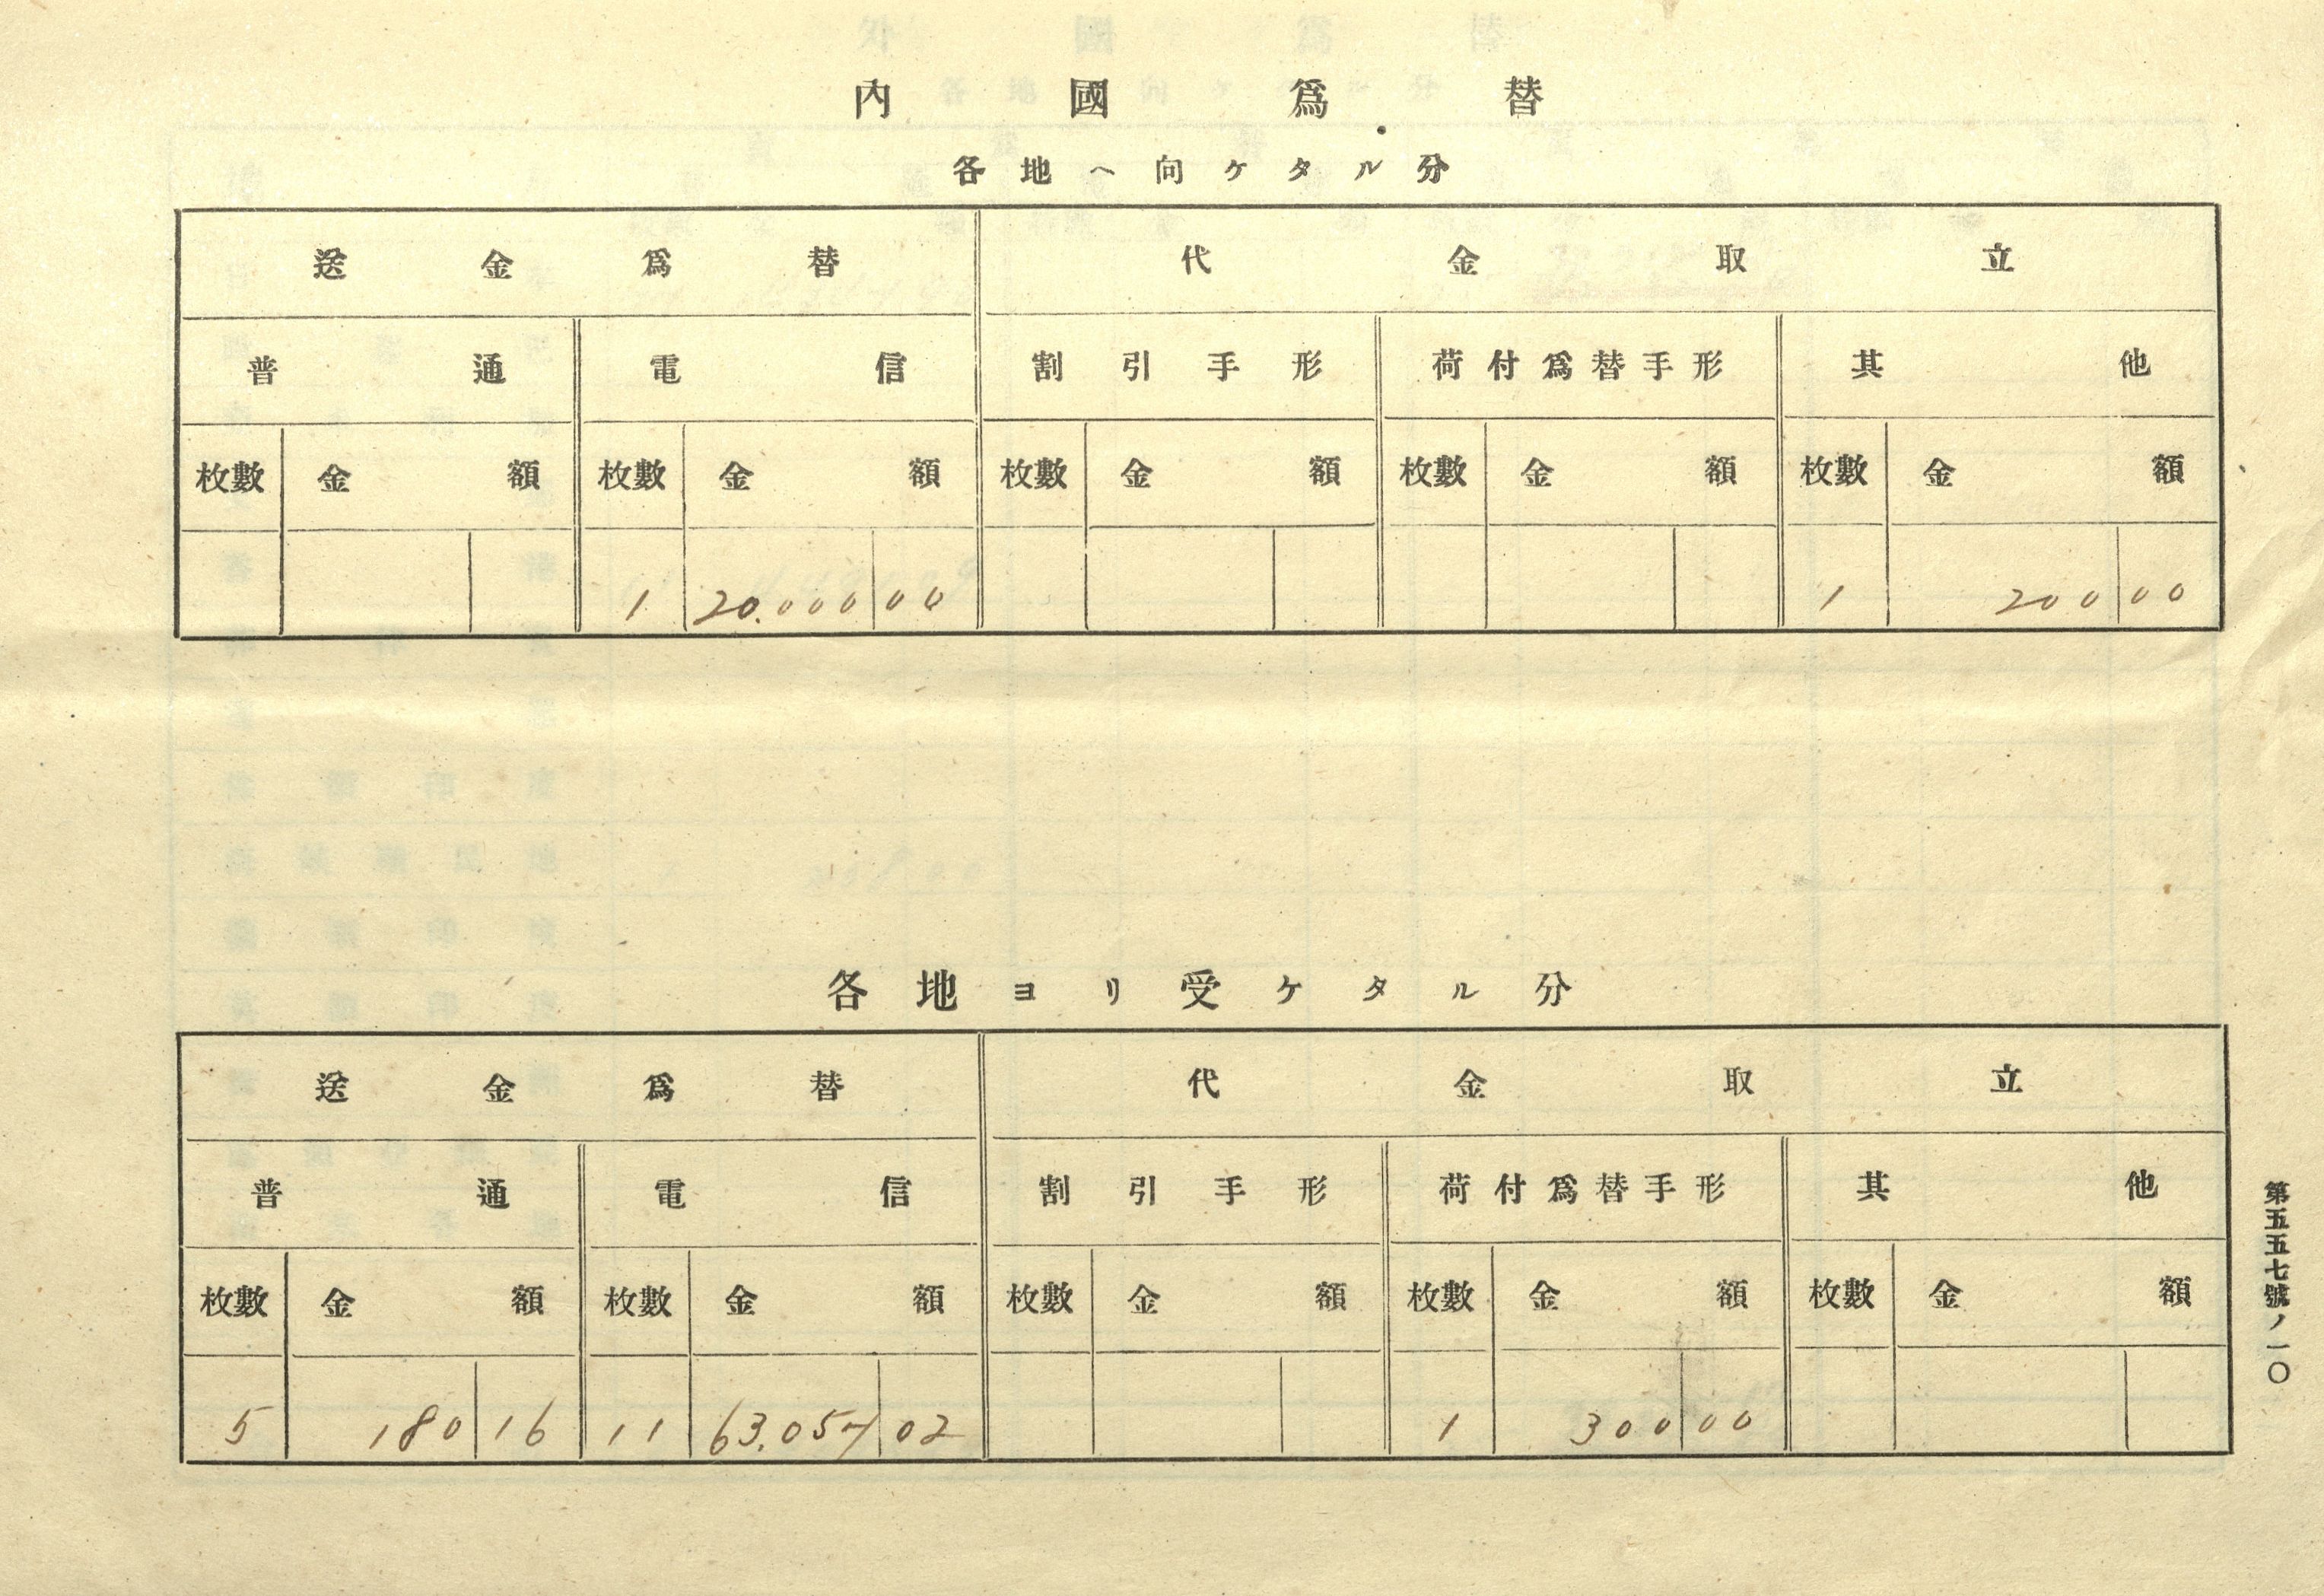 內國爲替
各地ヘ向ケタル分
送金爲替 代金取立
普通 電信 割引手形 荷付爲替手形 其他
枚數 金額 枚數 金額 枚數 金額 枚數 金額 枚數 金額
1 20.000 00 1 200 00
各地ヨリ受ケタル分
送金爲替 代金取立
普通 電信 割引手形 荷付爲替手形 其他
枚數 金額 枚數 金額 枚數 金額 枚數 金額 枚數 金額
5 180 16 11 63.057 02 1 300 00
第五五七號ノ一〇